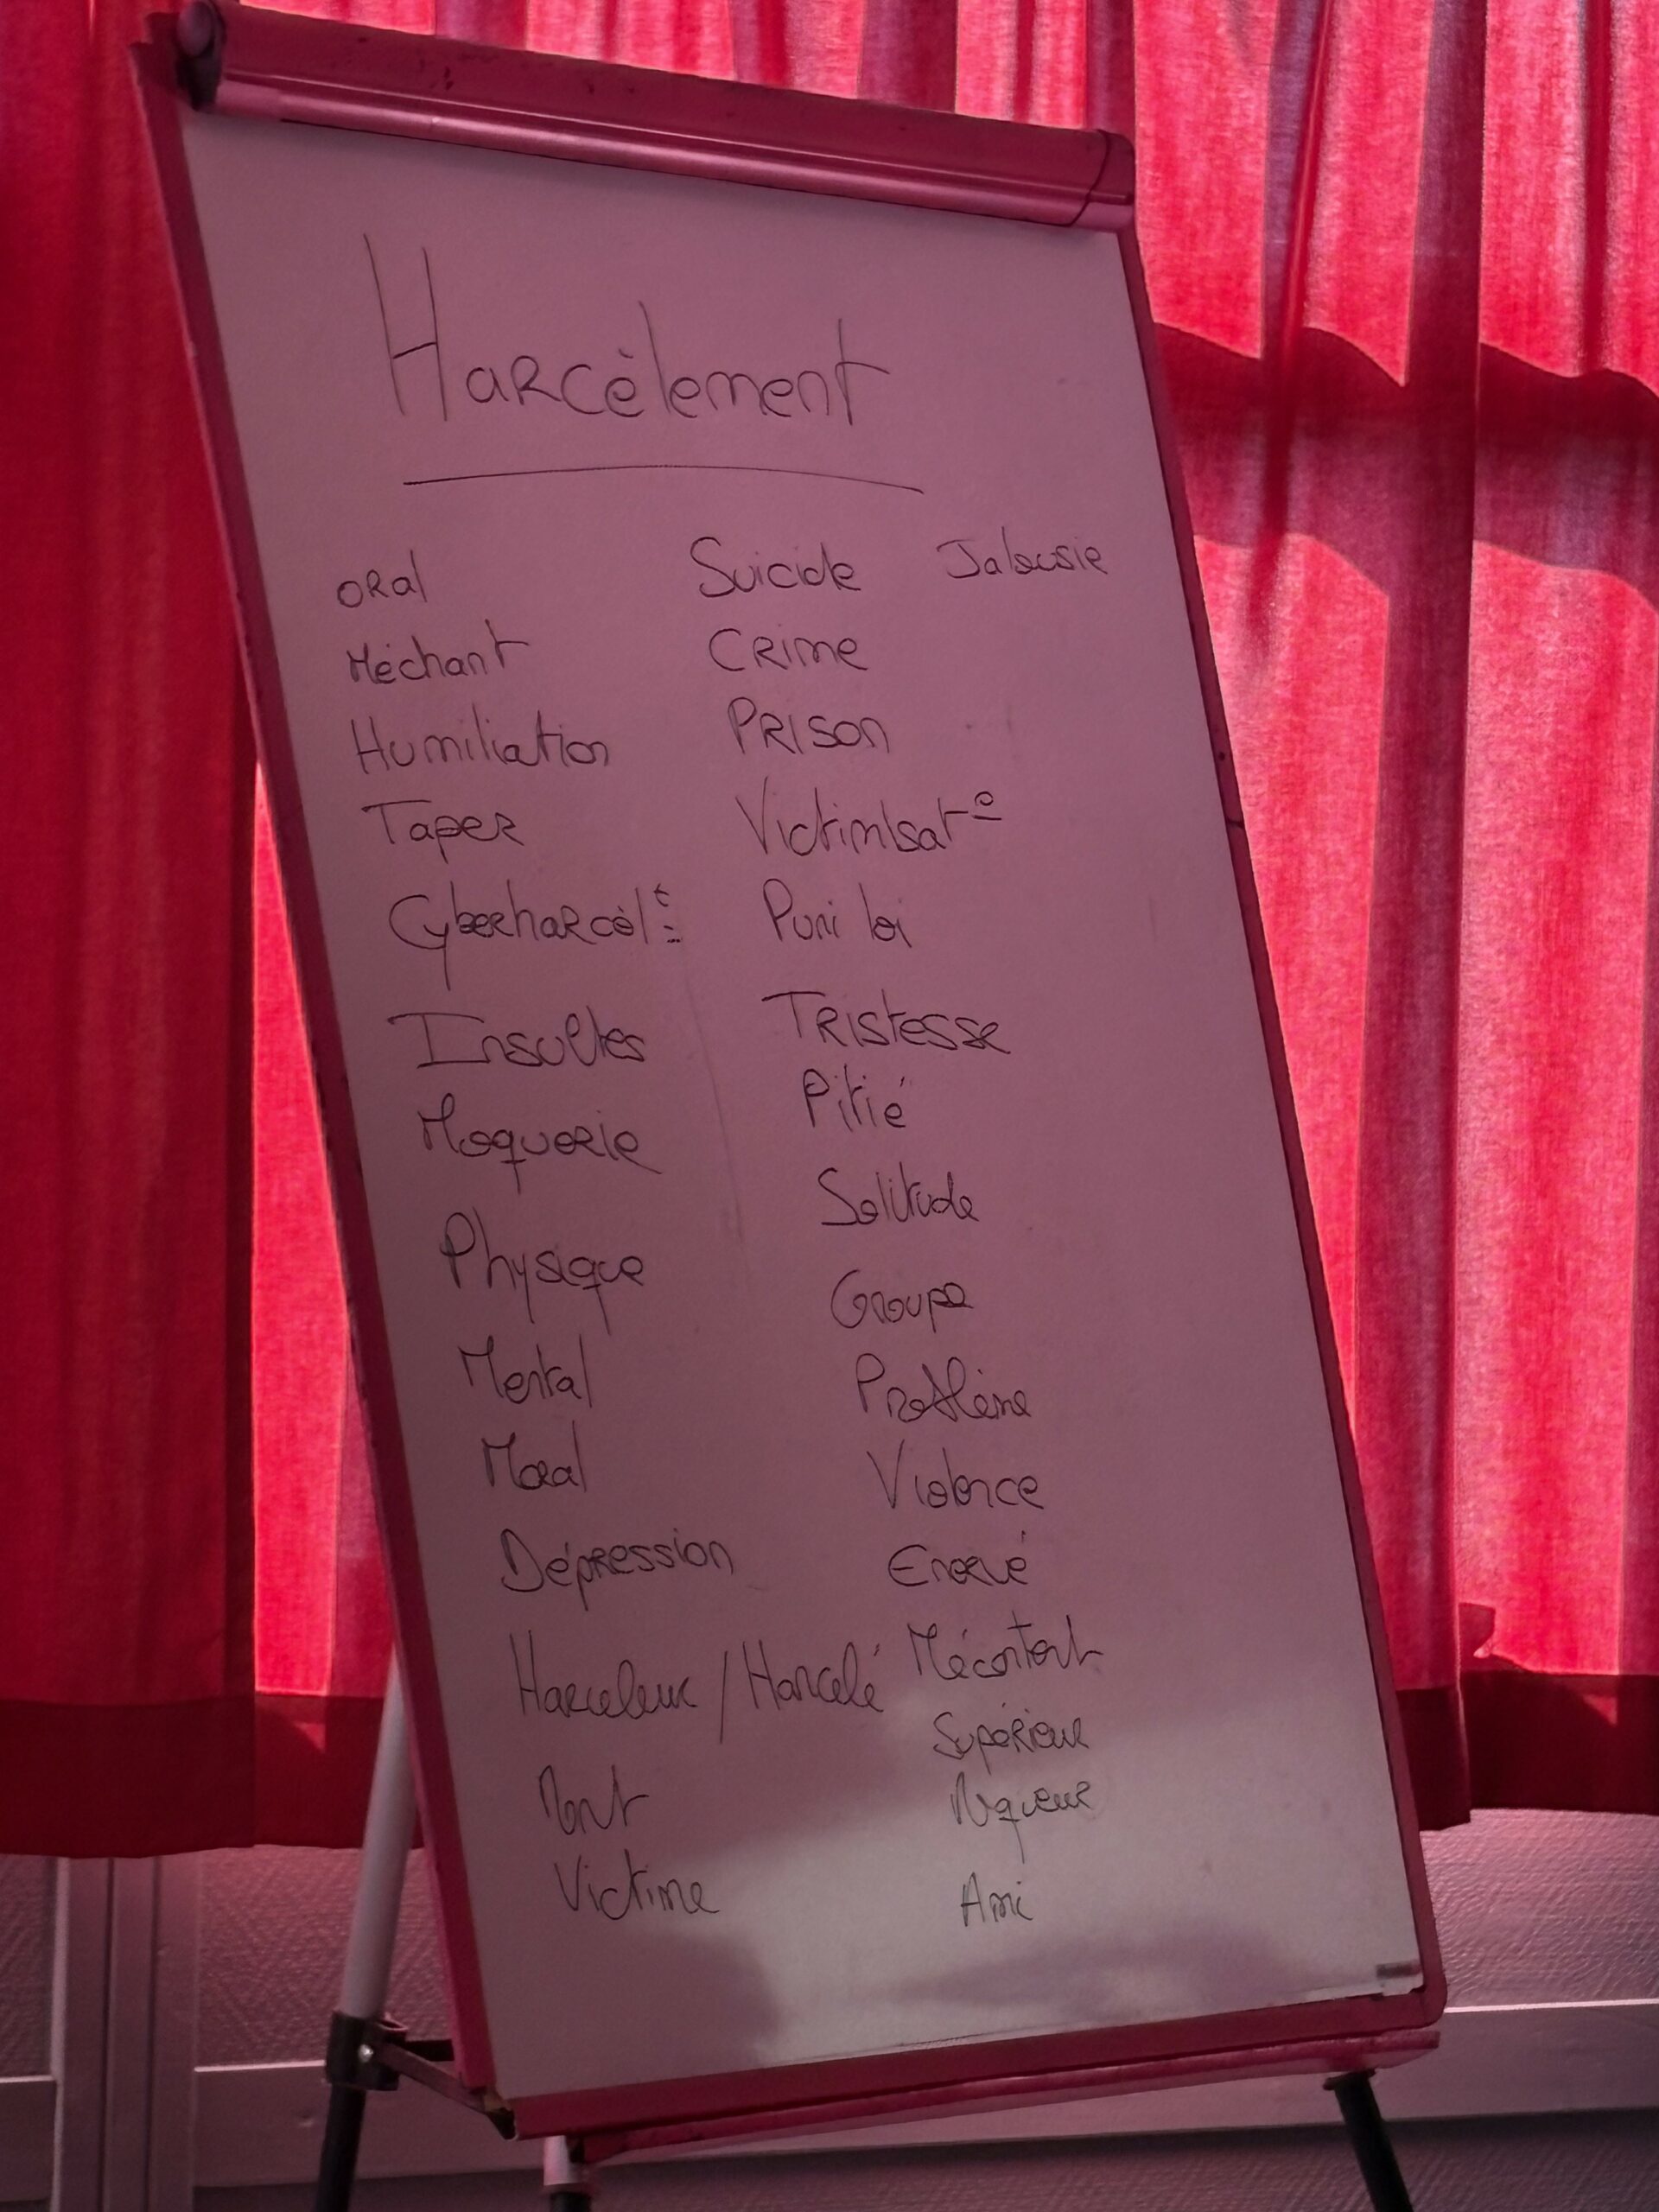 Harcèlement
Oral
Méchant
Humiliation
Taper
Cyberharcèlt
Insultes
Moquerie
Physique
Mental
Moral
Dépression
Harceleur / Harcelé
Mort
Victime
Suicide
Crime
Prison
Victimisat°
Puni loi
Tristesse
Pitié
Solitude
Groupe
Problème
Violence
Enervé
Mécontent
Supérieur
Ami
Jalousie